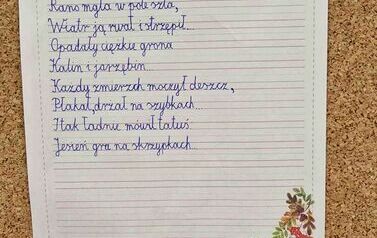 Rano mgła w pole szła,
Wiatr ją rwał i strzępił...
Opadały ciężkie grona
Kalin i jarzębin...
Każdy zmierzch moczył deszcz,
Płakał, drżał na szybkach...
I tak ładnie mówił tatuś:
Jesień gra na skrzypkach...